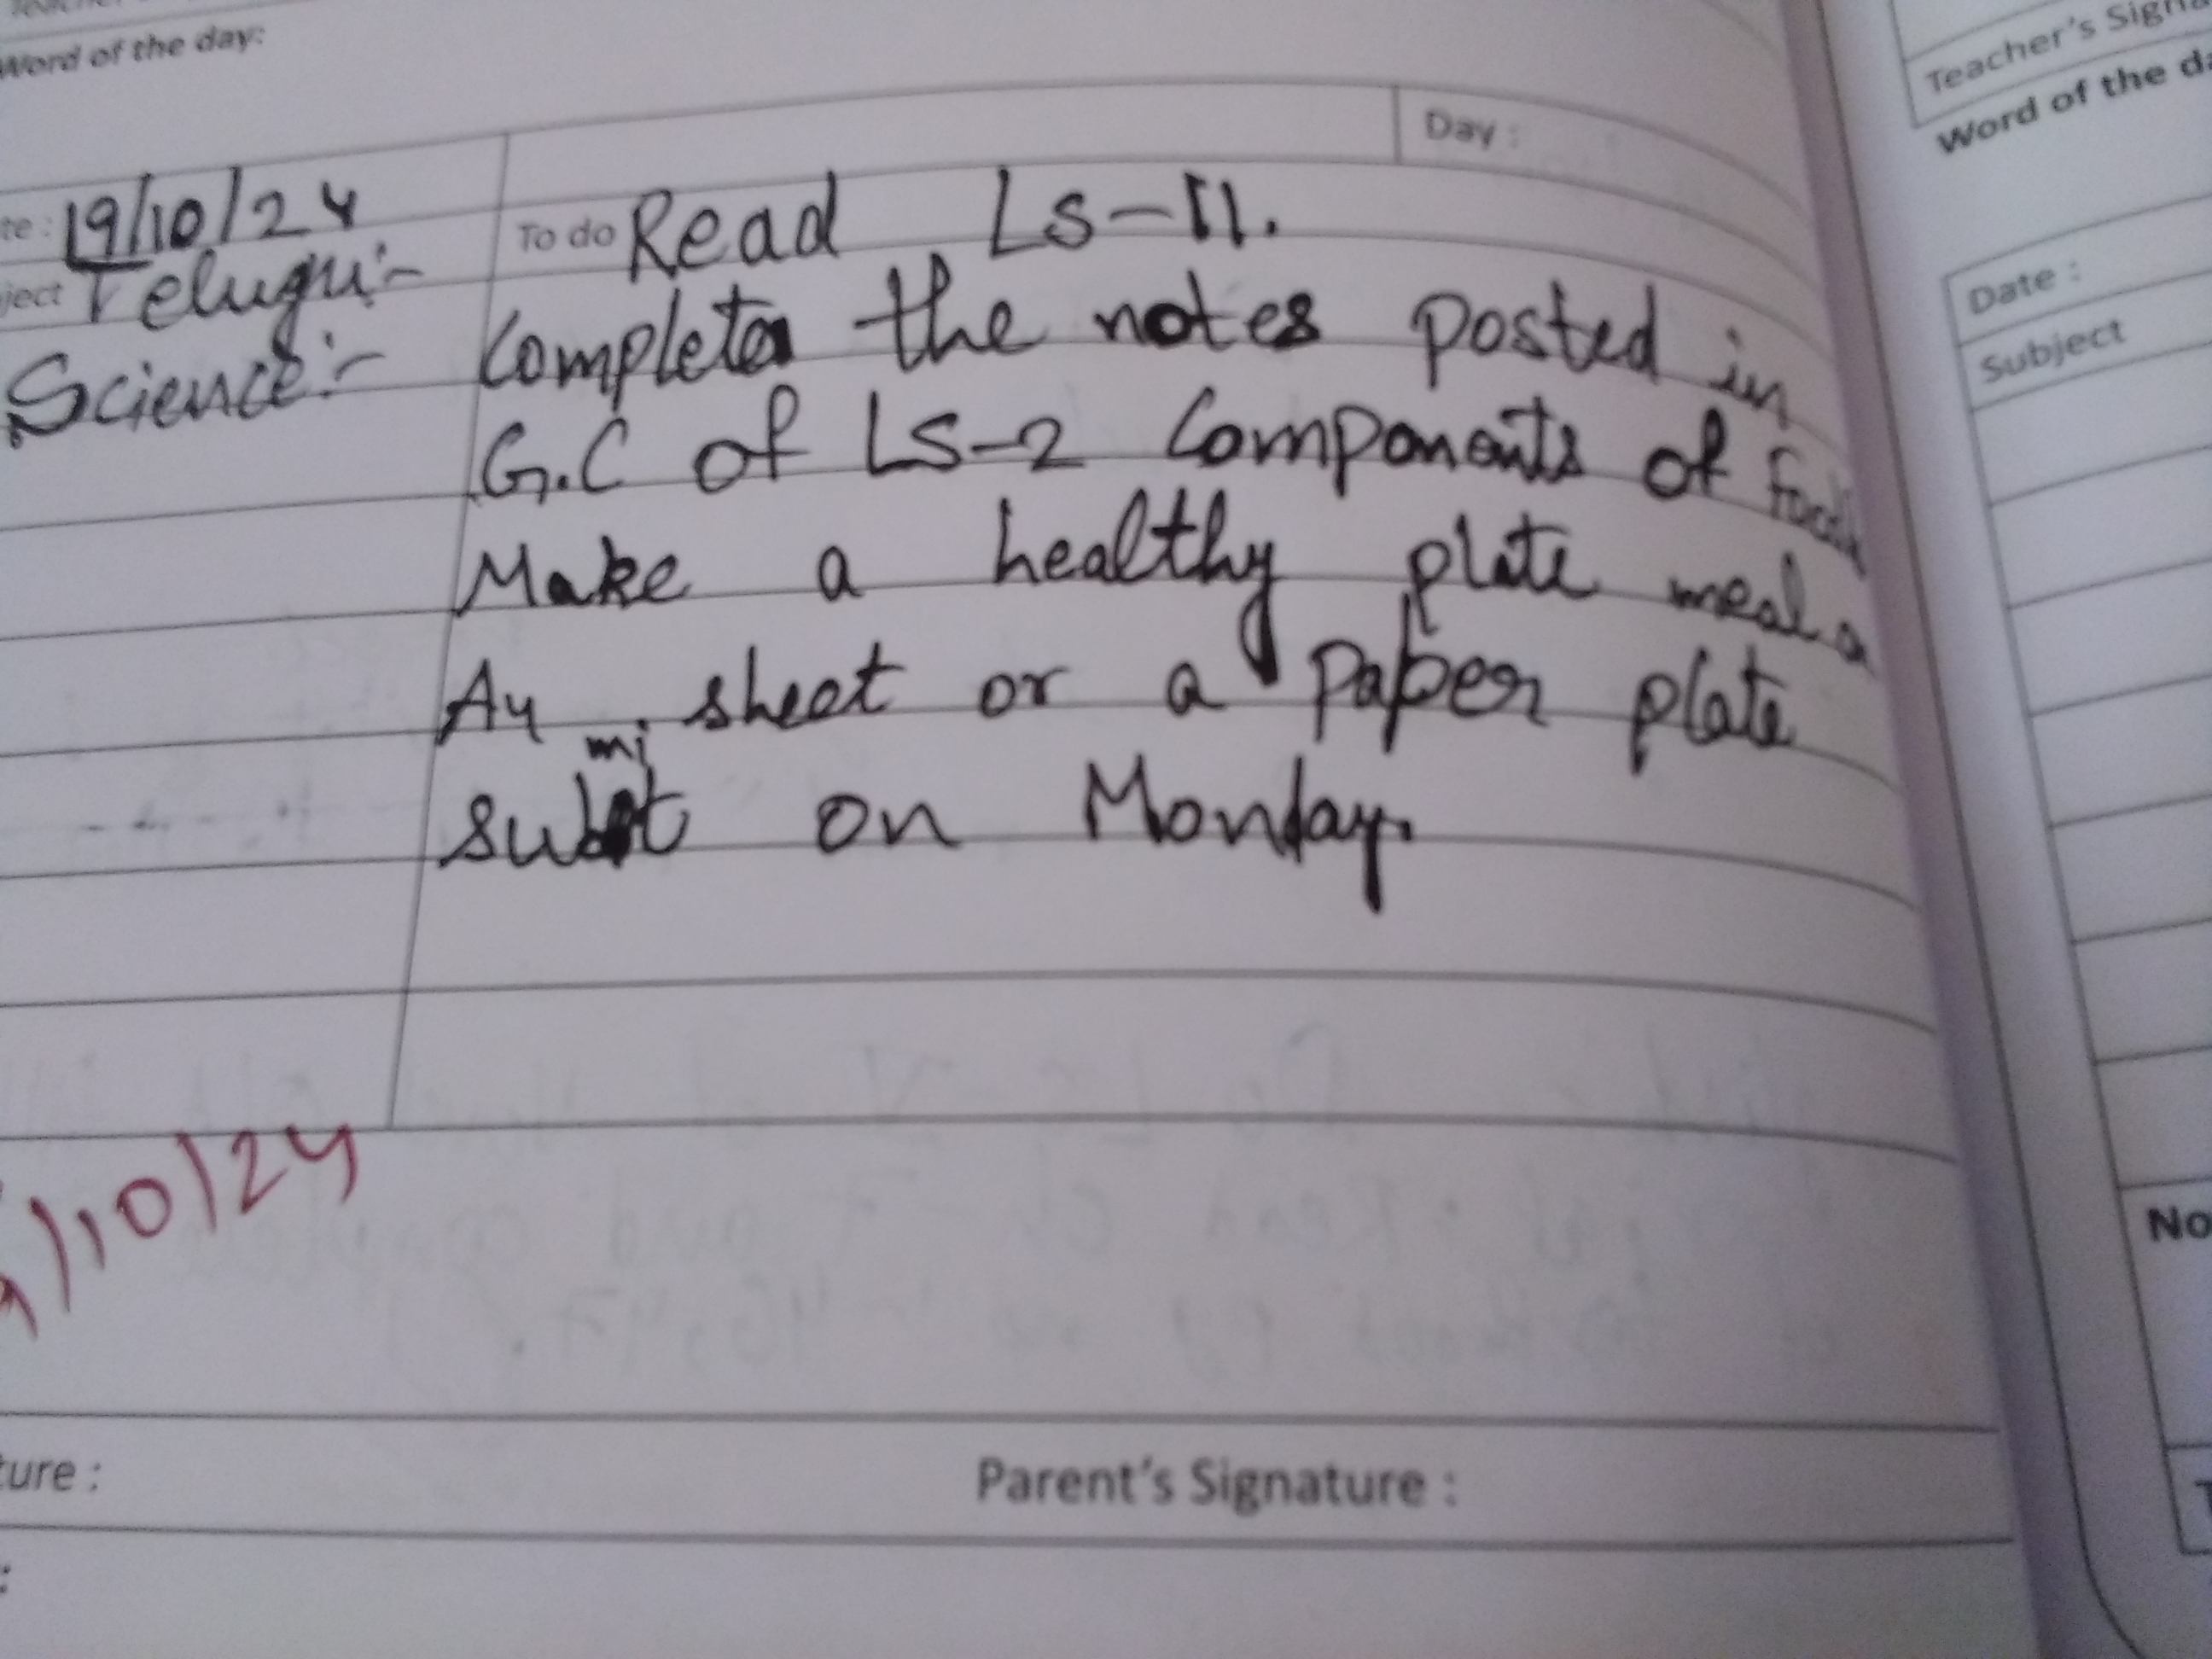 Word of the day:
Day :
te : 19/10/24
To do Read Ls-11.
ject Telugu:-
Science:- Complete the notes posted in
G.C of LS-2 Components of food
Make a healthy plate meal
A4 sheet or a paper plate
submit on Monday.
/10/24
ture : Parent's Signature :
Teacher's Signa
Word of the da
Date :
Subject
No